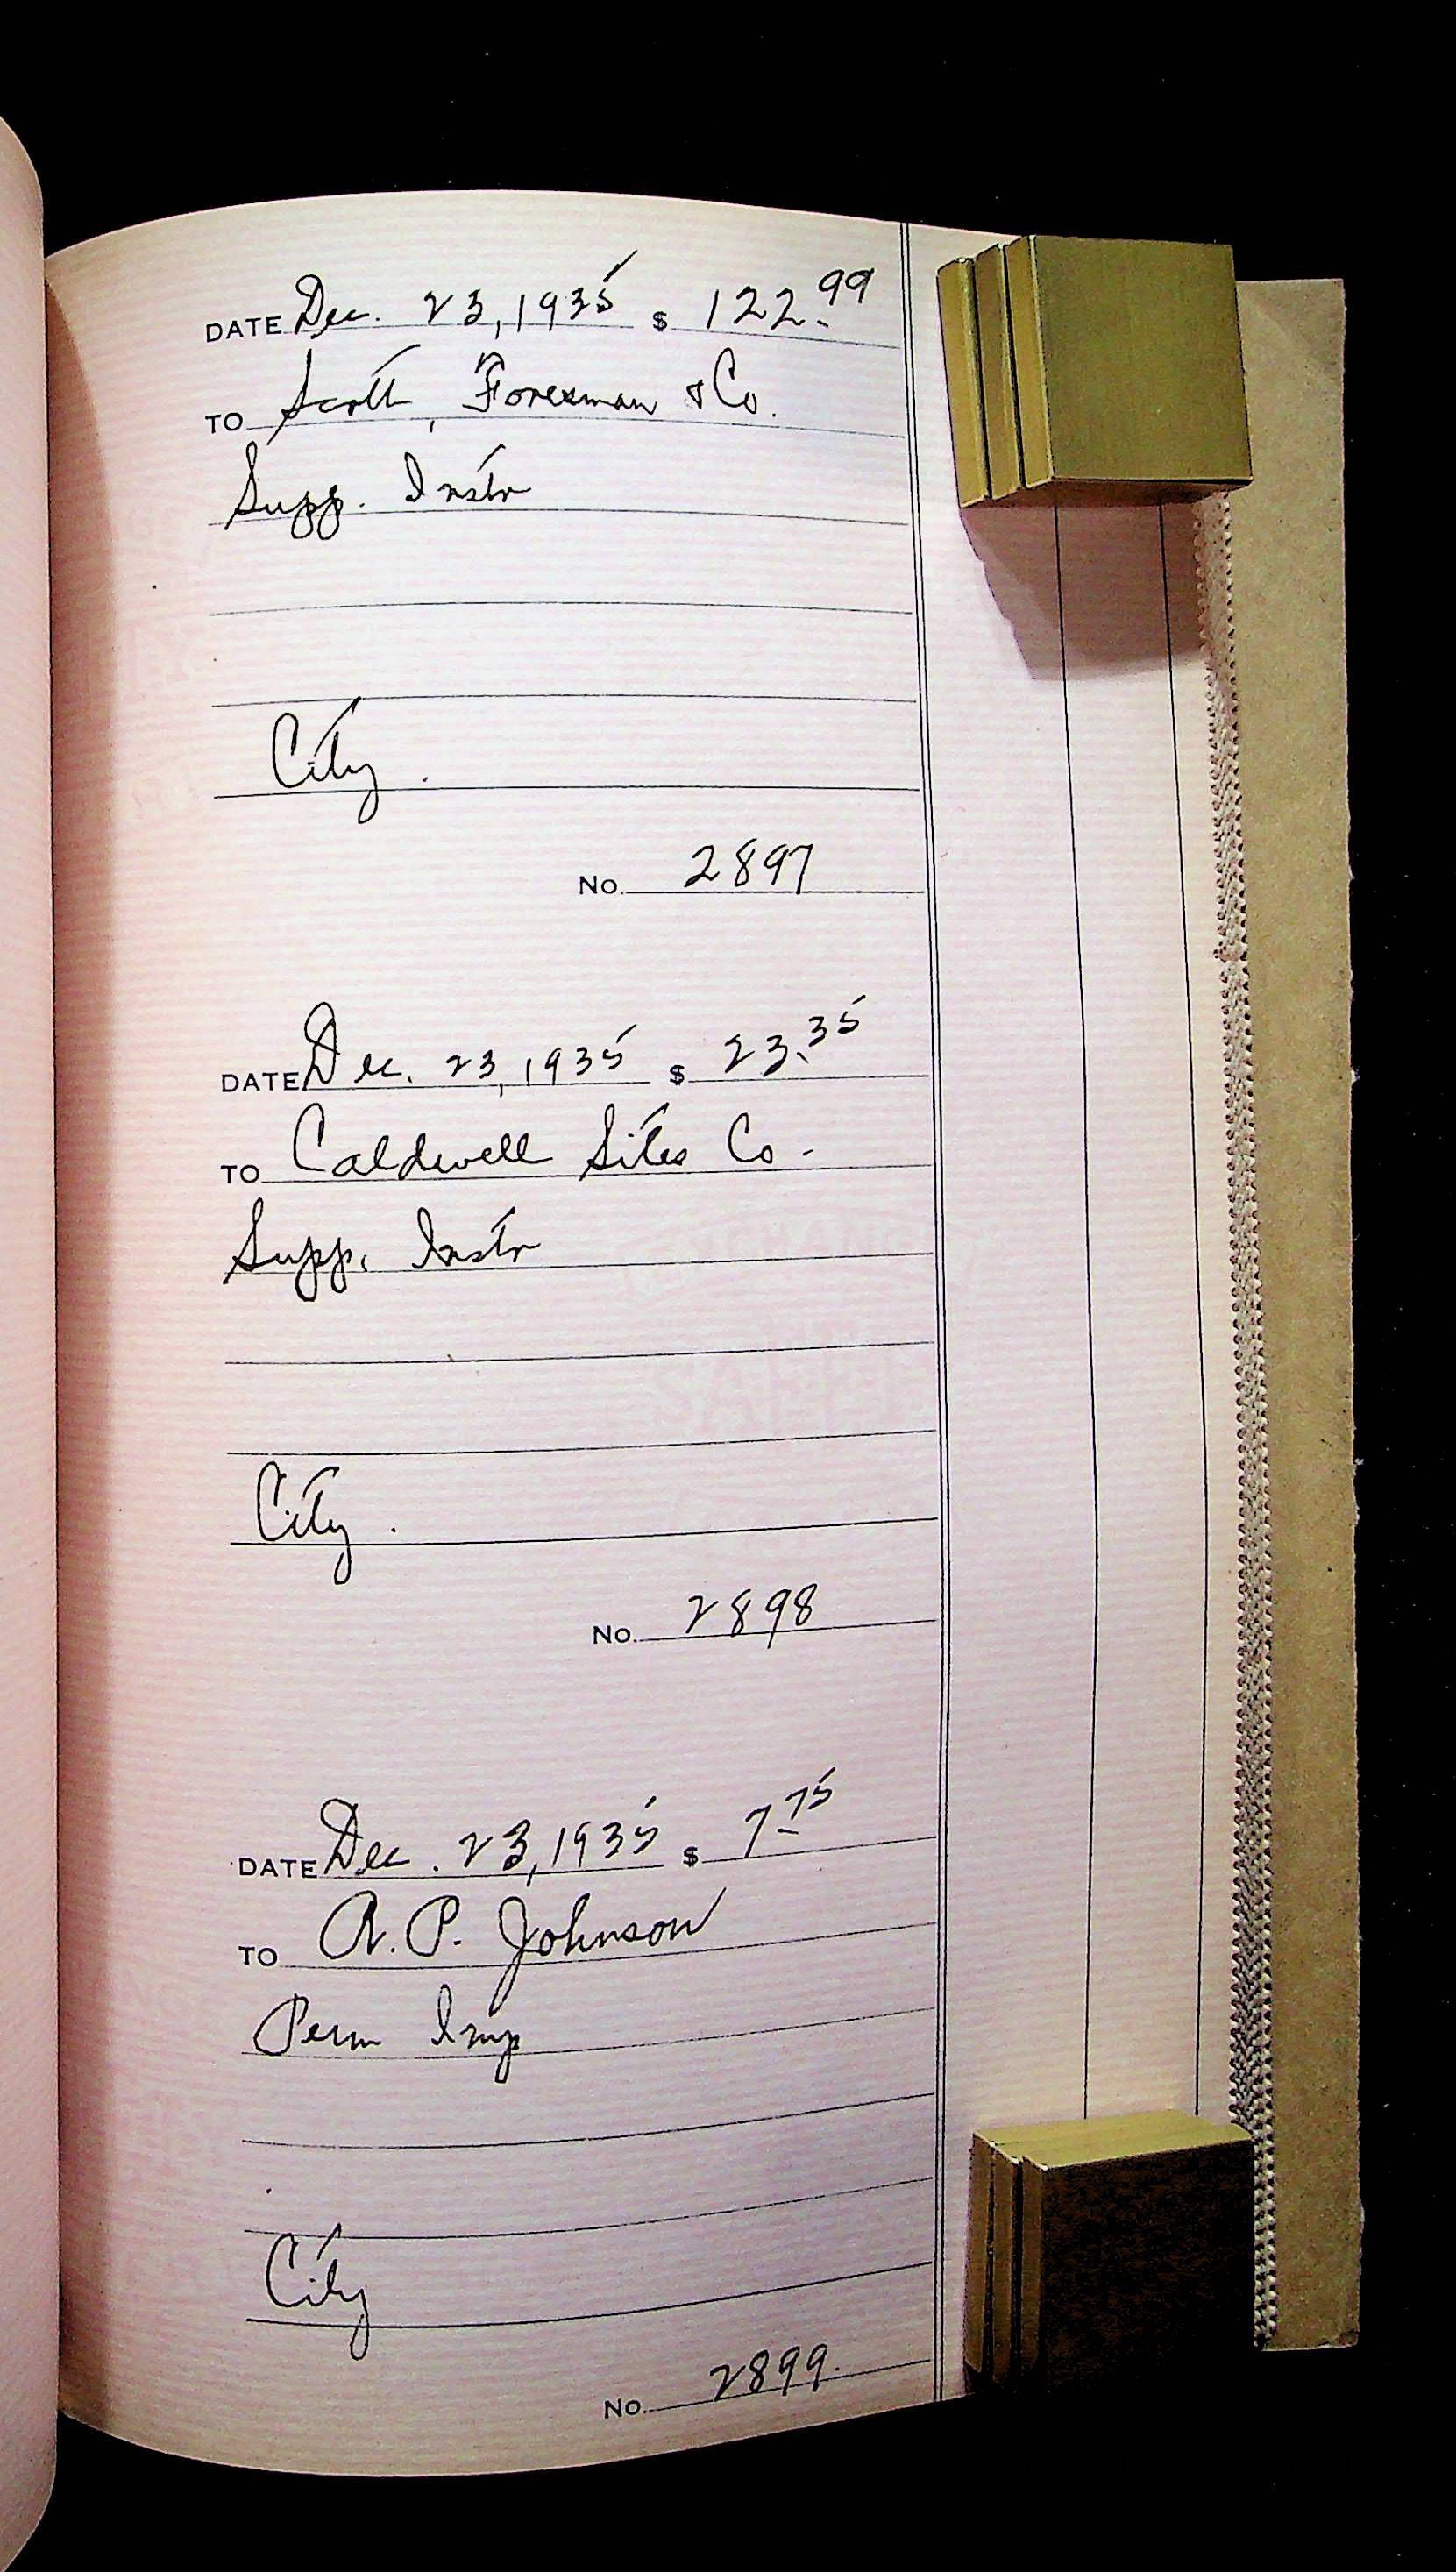 DATE Dec. 23, 1935 $ 122.99
TO Scott, Foresman & Co.
Supp. Instr
City.
No. 2897
DATE Dec. 23, 1935 $ 23.35
TO Caldwell Sites Co.
Supp. Instr
City.
No. 2898
DATE Dec. 23, 1935 $ 7.75
TO A. P. Johnson
Perm Imp
City
No. 2899.